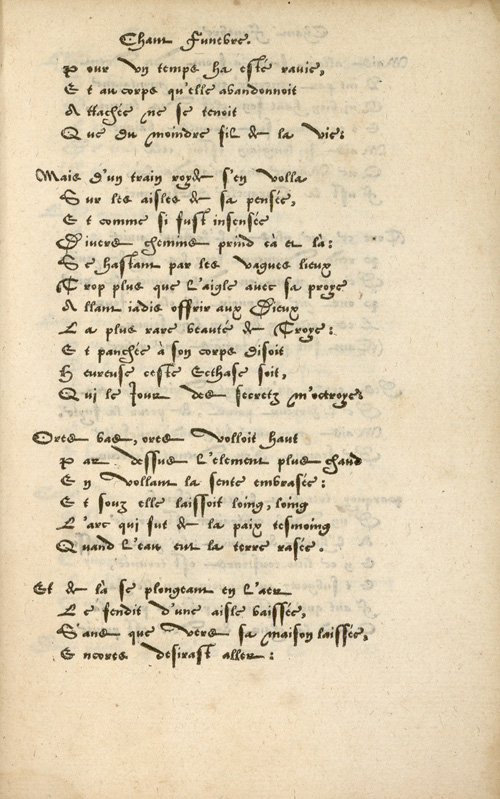 Chant Funebre.
Pour un temps ha esté ravie,
Et au corps qu'elle abandonnoit
Attachée ne se tenoit
Que du moindre fil de la vie:
Mais d'un train royde s'en volla
Sur les aisles de sa pensée,
Et comme si fust insensée
Divers chemins prind cà et là:
Se hastant par les vagues lieux
Trop plus que l'aigle avec sa proye
Allant iadis offrir aux Dieux
La plus rare beauté de Troye:
Et panchée à son corps disoit
Heureuse ceste Ecthase soit,
Qui le Jour des secretz m'octroye
Ores bas, ores volloit haut
Par dessus l'element plus chaud
En vollant la sente embrasée:
Et souz elle laissoit loing, loing
L'arc qui fut de la paix tesmoing
Quand l'eau eut la terre rasée.
Et de là se plongeant en l'aer
Le fendit d'une aisle baissée,
Sans que vers sa maison laissée,
Encores desirast aller: